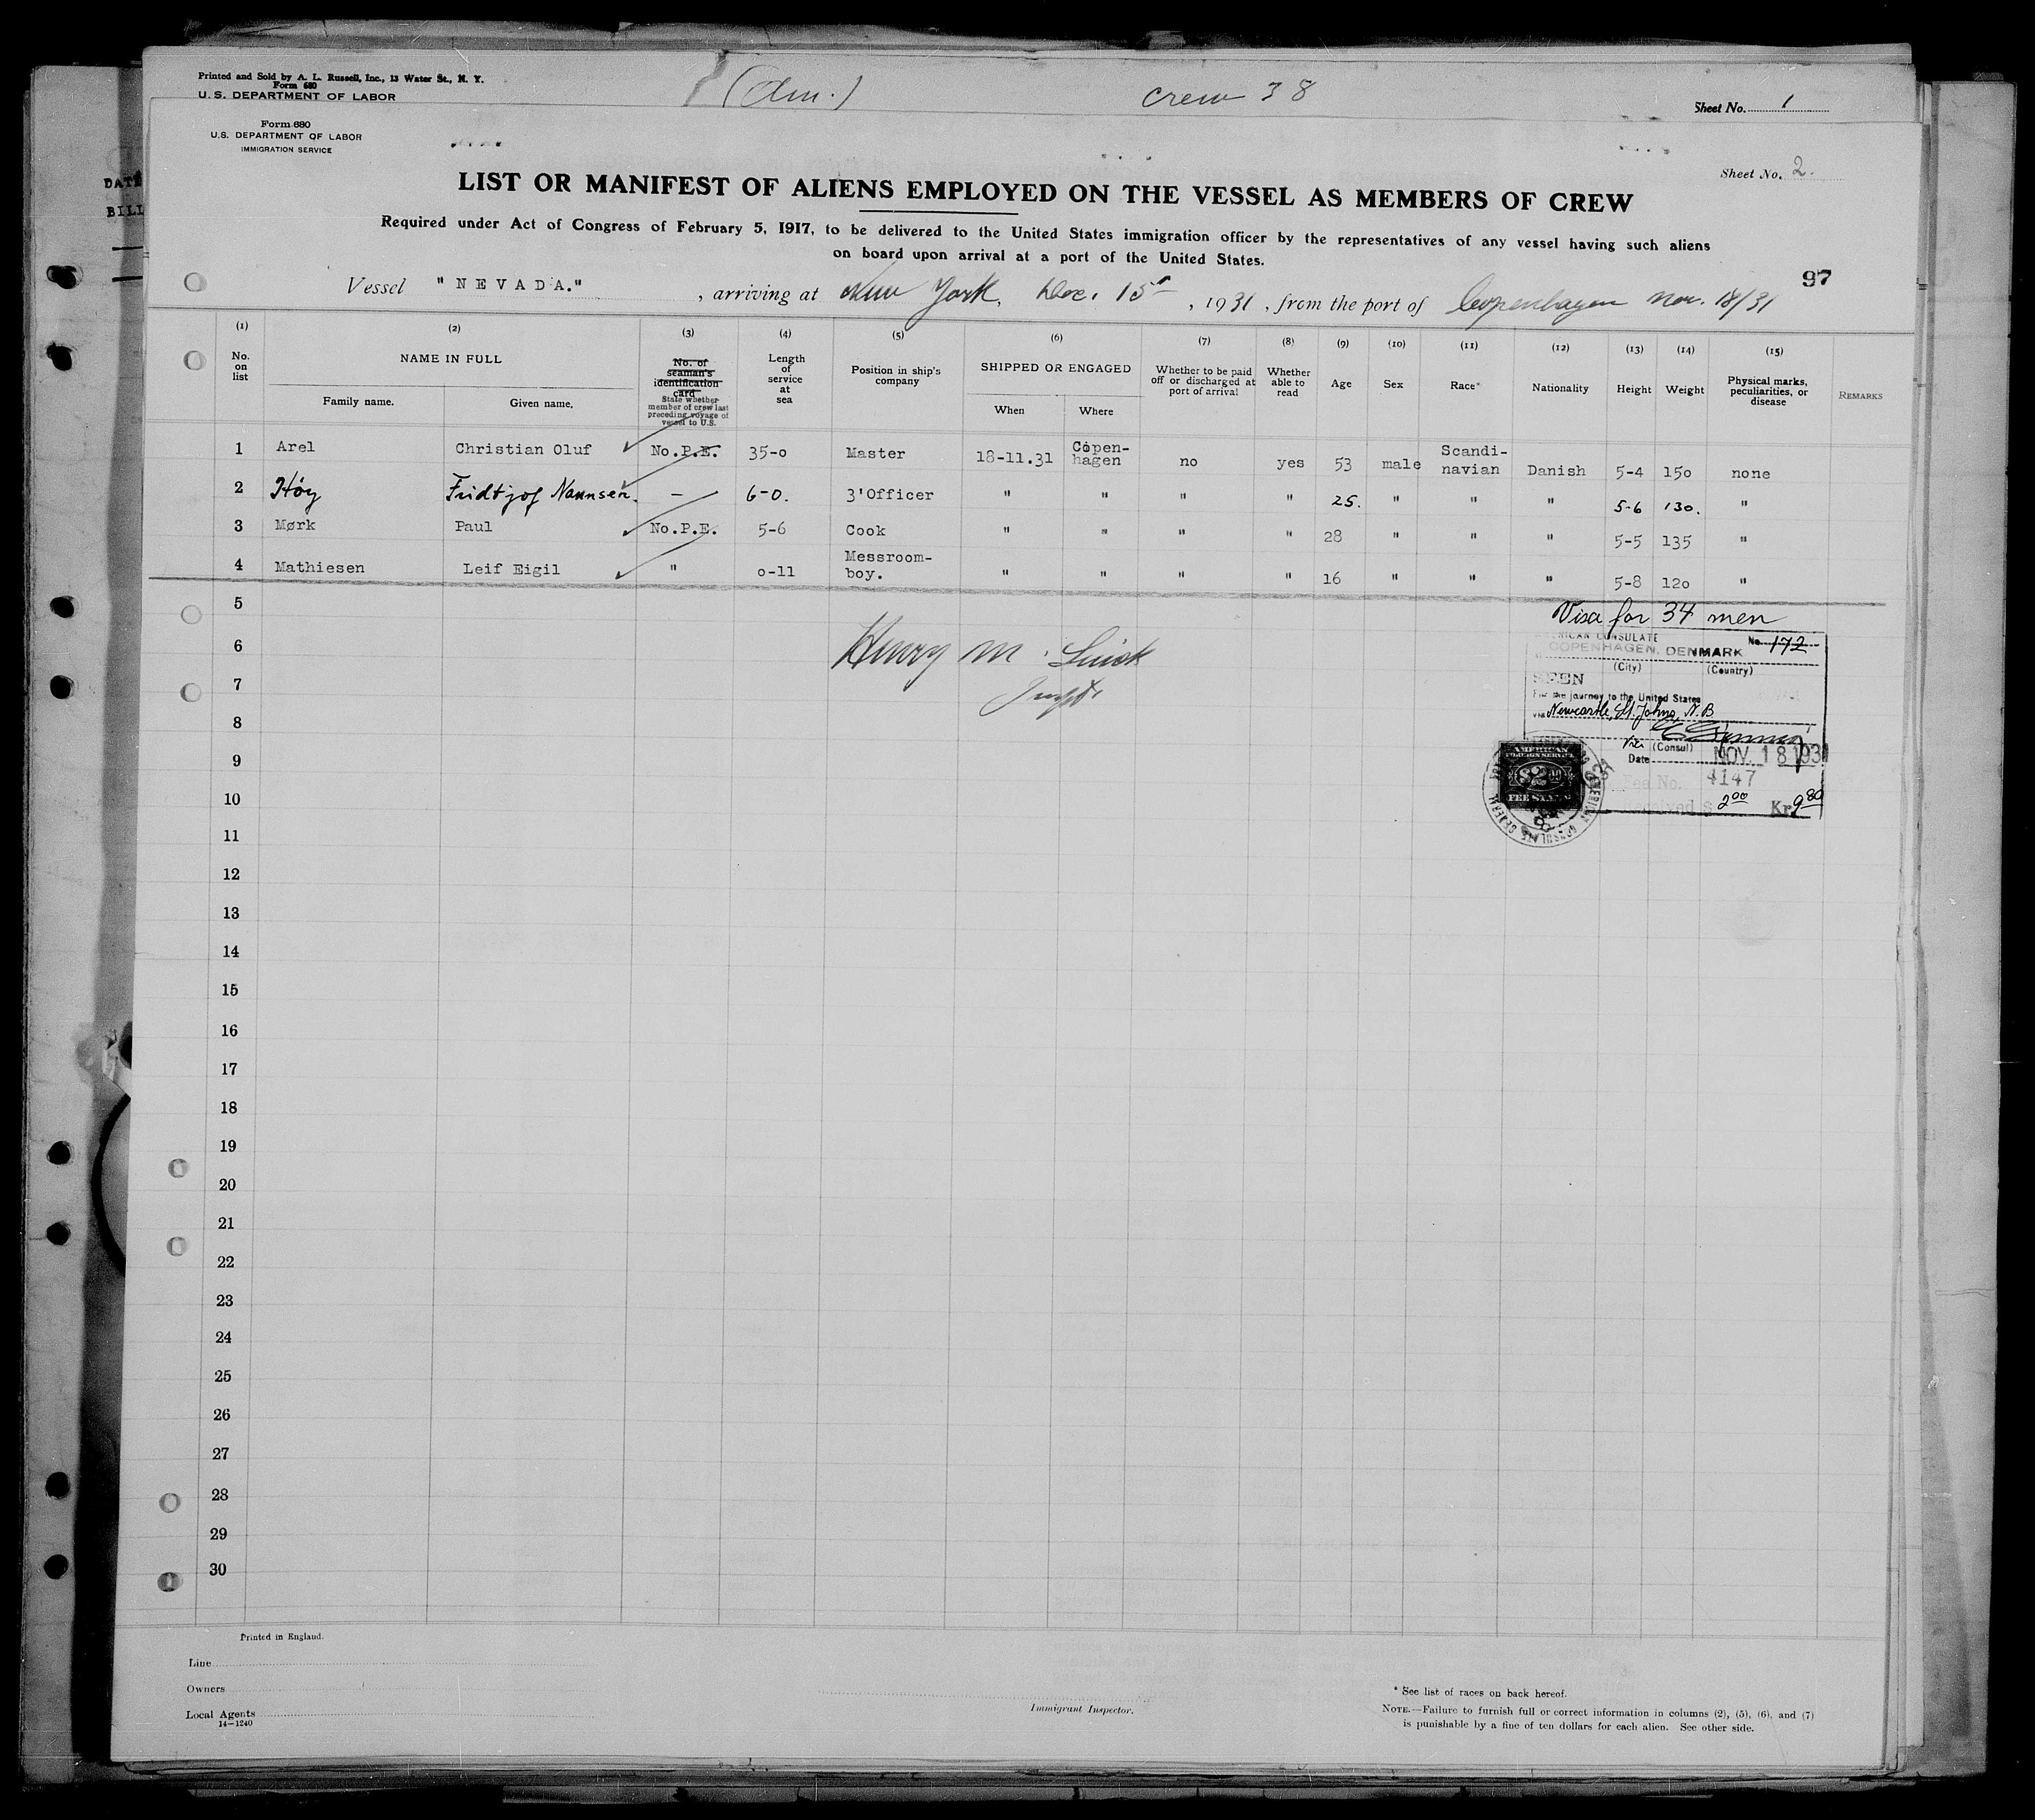 Printed and Sold by A. L. Russell, Inc., 13 Water St., N. Y.
Form 680
U. S. DEPARTMENT OF LABOR
crew 38
Sheet No. 1
Form 680
U.S. DEPARTMENT OF LABOR
IMMIGRATION SERVICE
Sheet No. 2.
DATE
BILL
LIST OR MANIFEST OF ALIENS EMPLOYED ON THE VESSEL AS MEMBERS OF CREW
Required under Act of Congress of February 5, 1917, to be delivered to the United States immigration officer by the representatives of any vessel having such aliens
on board upon arrival at a port of the United States.
97
Vessel "NEVADA." , arriving at New York, Dec. 15 , 1931 , from the port of Copenhagen Nov. 18/31
(1) (2) (3) (4) (5) (6) (7) (8) (9) (10) (11) (12) (13) (14) (15)
No. on list
NAME IN FULL
Family name. Given name.
No. of seaman's identification card
State whether member of crew last preceding voyage of vessel to U.S.
Length of service at sea
Position in ship's company
SHIPPED OR ENGAGED
When Where
Whether to be paid off or discharged at port of arrival
Whether able to read
Age
Sex
Race*
Nationality
Height
Weight
Physical marks, peculiarities, or disease
REMARKS
1 Arel Christian Oluf No.P.E. 35-0 Master 18-11.31 Copen-hagen no yes 53 male Scandi-navian Danish 5-4 150 none
2 Høy Fridtjof Nannsen. — 6-0. 3'Officer " " " " 25. " " " 5-6 130. "
3 Mørk Paul No.P.E. 5-6 Cook " " " " 28 " " " 5-5 135 "
4 Mathiesen Leif Eigil " 0-11 Messroom-boy. " " " " 16 " " " 5-8 120 "
5
Visa for 34 men
6
AMERICAN CONSULATE No. 172
COPENHAGEN, DENMARK
(City) (Country)
Henry M.
7
SEEN
For the journey to the United States
via Newcastle, St. Johns, N.B
8
Vice (Consul)
9
Date NOV. 18 1931
AMERICAN
FOREIGN SERVICE
$2.00
FEE STAMP
Fee No. 4147
10
Received $ 2.00 Kr. 9.80
11
12
13
14
15
16
17
18
19
20
21
22
23
24
25
26
27
28
29
30
Printed in England.
Line
Owners
Local Agents
14—1240
Immigrant Inspector.
* See list of races on back hereof.
NOTE.—Failure to furnish full or correct information in columns (2), (5), (6), and (7)
is punishable by a fine of ten dollars for each alien. See other side.